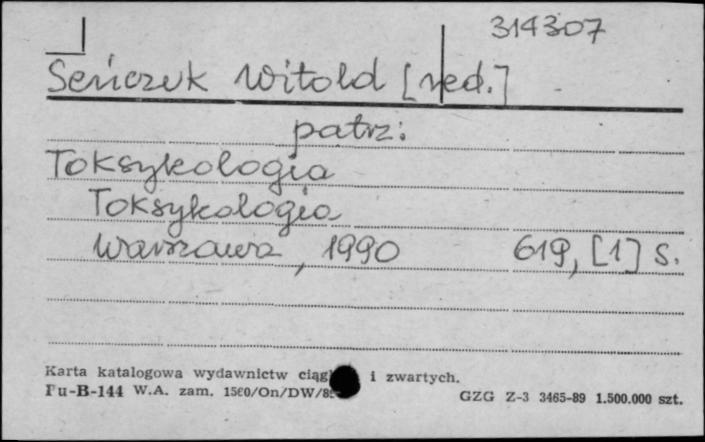 314307
Seńczuk Witold [red.]
patrz:
Toksykologia
Toksykologia
Warszawa, 1990 619, [1] s.
Karta katalogowa wydawnictw i zwartych.
Pu-B-144 W.A. zam. GZG Z-3 3465-89 1.500.000 szt.